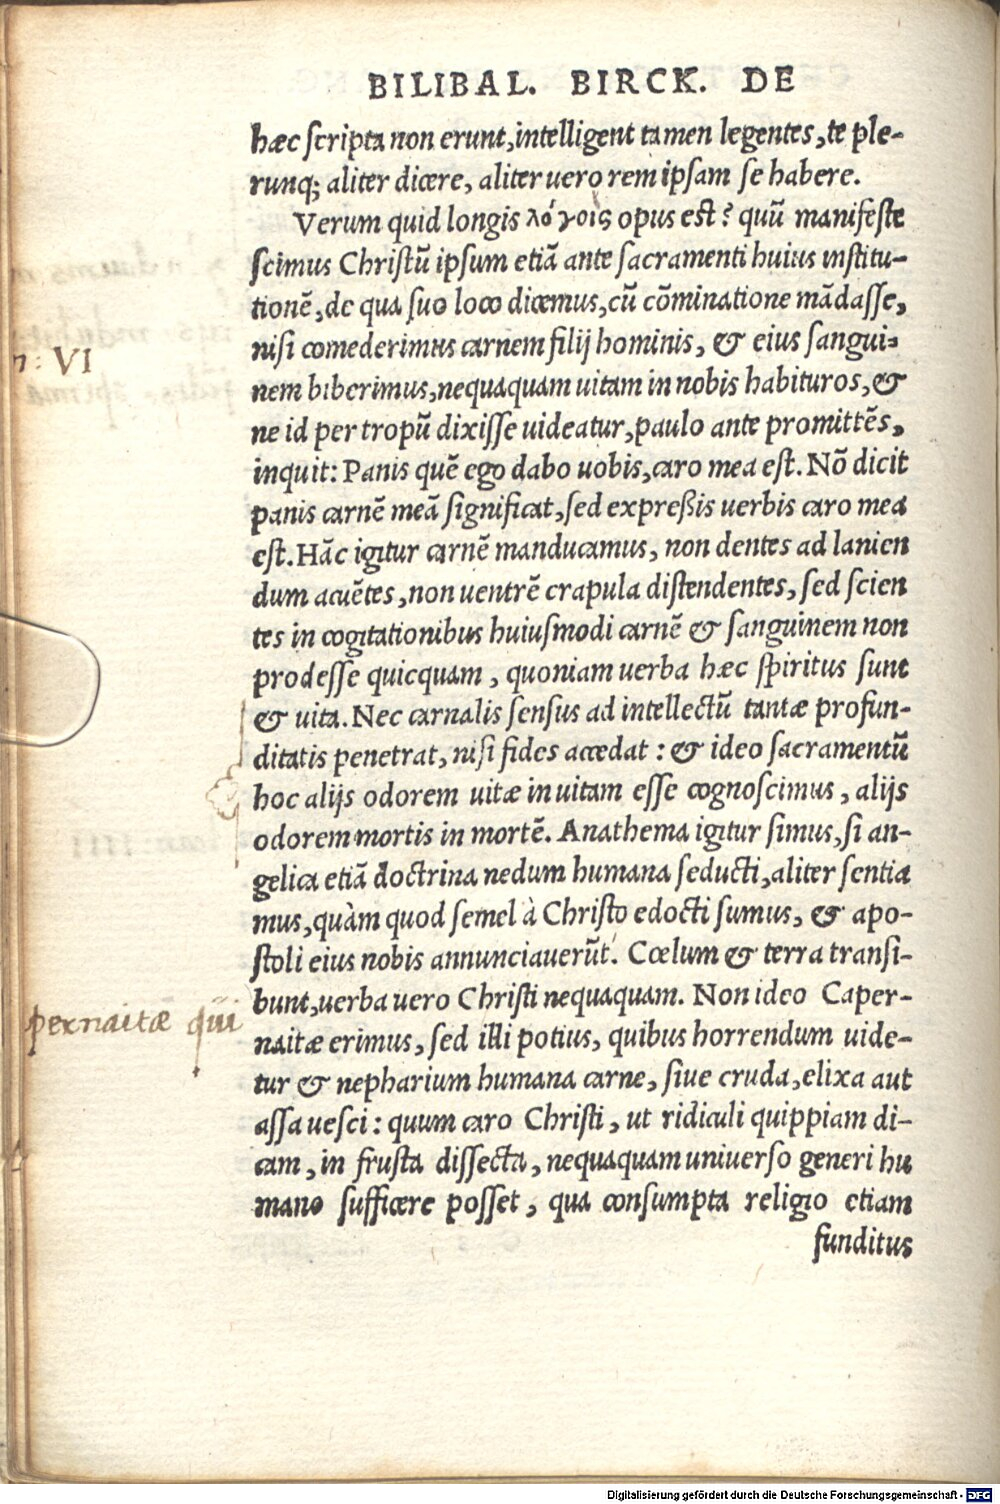 BILIBAL. BIRCK. DE
hæc scripta non erunt, intelligent tamen legentes, te ple-
runq; aliter dicere, aliter uero rem ipsam se habere.
Verum quid longis λόγοις opus est? quū manifeste
scimus Christū ipsum etiā ante sacramenti huius institu-
tionē, de qua suo loco dicemus, cū cōminatione mādasse,
nisi comederimus carnem filij hominis, & eius sangui-
n: VI
nem biberimus, nequaquam uitam in nobis habituros, &
ne id per tropū dixisse uideatur, paulo ante promittēs,
inquit: Panis quē ego dabo uobis, caro mea est. Nō dicit
panis carnē meā significat, sed expreßis uerbis caro mea
est. Hāc igitur carnē manducamus, non dentes ad lanien
dum acuētes, non uentrē crapula distendentes, sed scien
tes in cogitationibus huiusmodi carnē & sanguinem non
prodesse quicquam, quoniam uerba hæc spiritus sunt
& uita. Nec carnalis sensus ad intellectū tantæ profun-
ditatis penetrat, nisi fides accedat: & ideo sacramentū
hoc alijs odorem uitæ in uitam esse cognoscimus, alijs
odorem mortis in mortē. Anathema igitur simus, si an-
gelica etiā doctrina nedum humana seducti, aliter sentia
mus, quàm quod semel à Christo edocti sumus, & apo-
stoli eius nobis annunciauerūt. Cœlum & terra transi-
bunt, uerba uero Christi nequaquam. Non ideo Caper-
pernaitæ qui
naitæ erimus, sed illi potius, quibus horrendum uide-
tur & nepharium humana carne, siue cruda, elixa aut
assa uesci: quum caro Christi, ut ridiculi quippiam di-
cam, in frusta dissecta, nequaquam uniuerso generi hu
mano sufficere posset, qua consumpta religio etiam
funditus
Digitalisierung gefördert durch die Deutsche Forschungsgemeinschaft - DFG